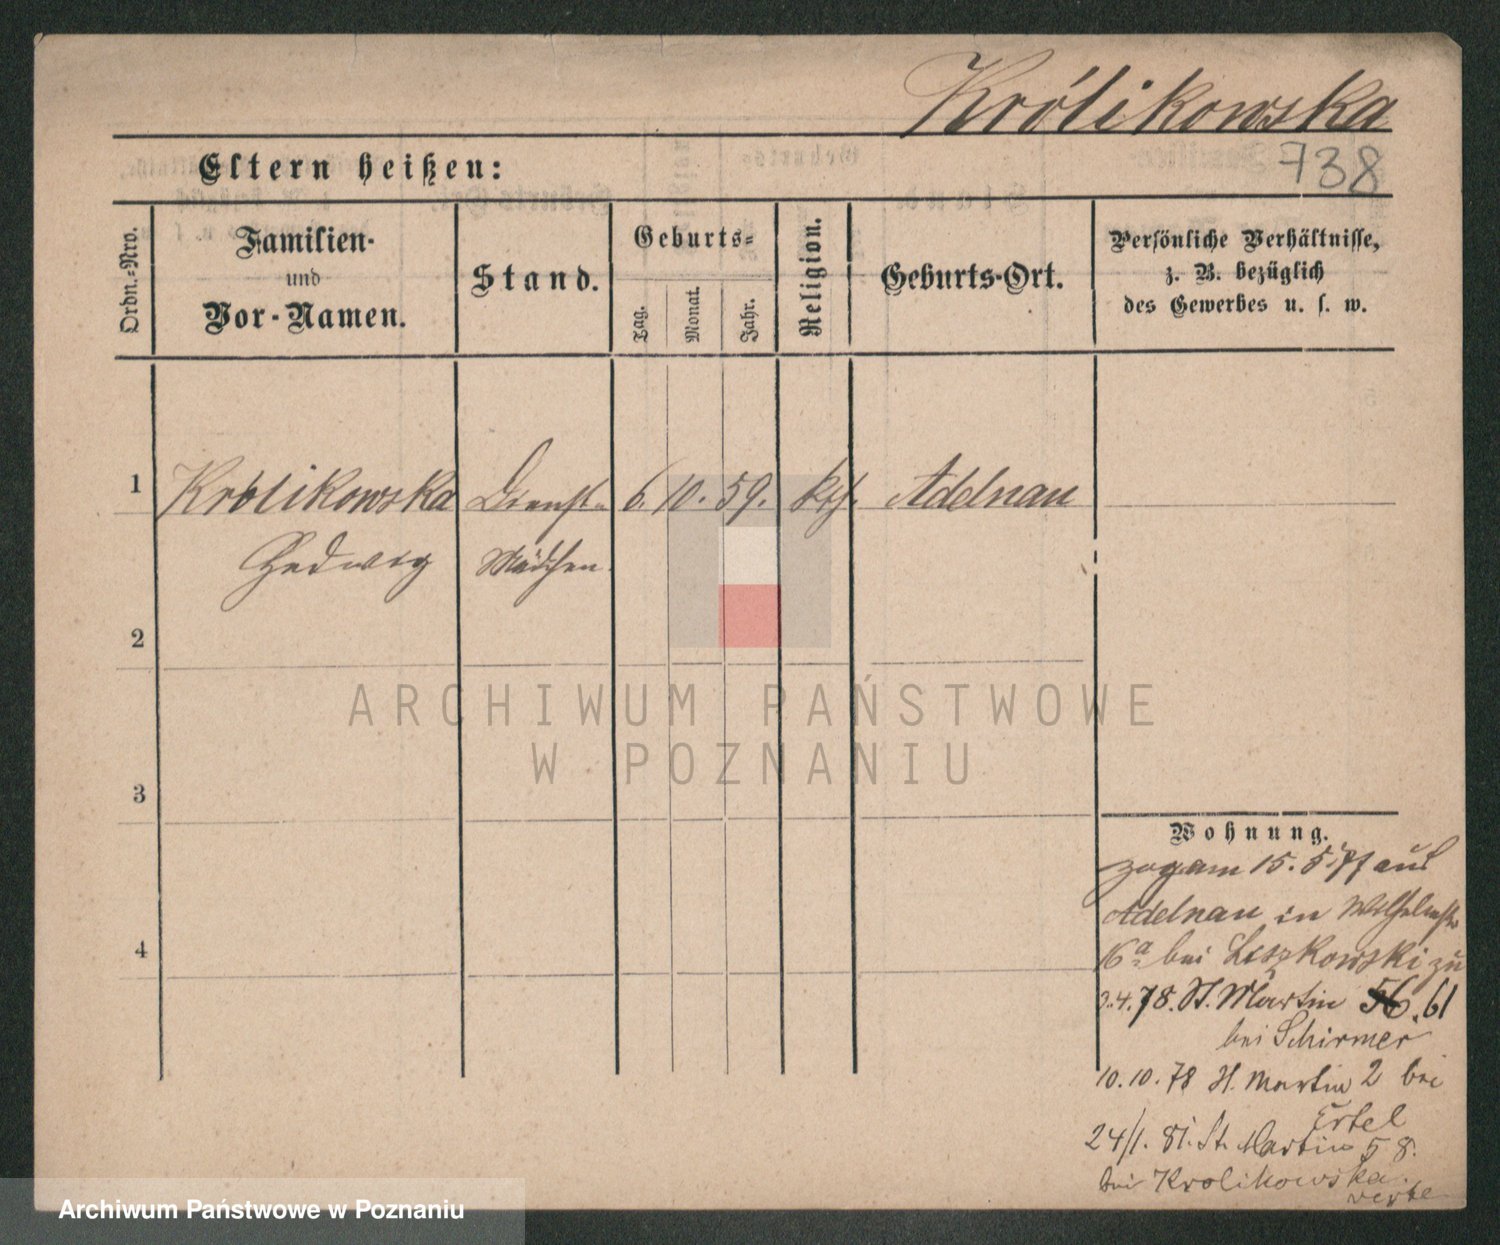 Królikowska
738
Eltern heißen:
Ordn.=Nro.
Familien-
und
Vor-Namen.
Stand.
Geburts=
Tag.
Monat.
Jahr.
Religion.
Geburts-Ort.
Persönliche Verhältnisse,
z. B. bezüglich
des Gewerbes u. s. w.
1 Królikowska Dienst= 6. 10. 59. kth. Adelnau
Hedwig Mädchen
2
3
4
Wohnung.
zog am 15. 5. 77 aus
Adelnau in Wilhelmstr
16a bei Leszkowski zu
2.4.78. St. Martin 56. 61
bei Schirmer
10.10.78 St. Martin 2 bei
Ertel
24/1. 81. St. Martin 58.
bei Krolikowska.
verte
ARCHIWUM PAŃSTWOWE
W POZNANIU
Archiwum Państwowe w Poznaniu